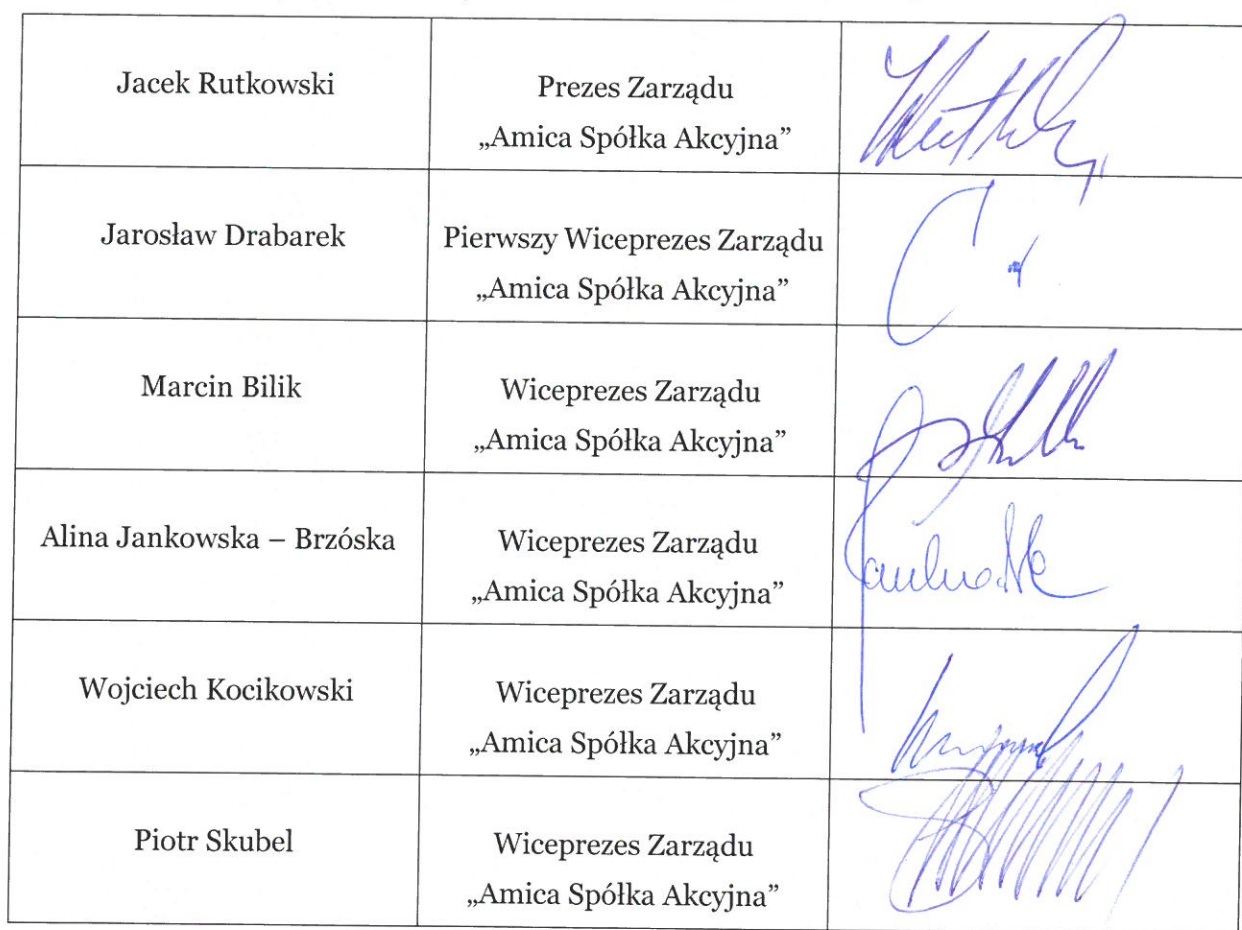 Jacek Rutkowski
Prezes Zarządu
„Amica Spółka Akcyjna”
Jarosław Drabarek
Pierwszy Wiceprezes Zarządu
„Amica Spółka Akcyjna”
Marcin Bilik
Wiceprezes Zarządu
„Amica Spółka Akcyjna”
Alina Jankowska – Brzóska
Wiceprezes Zarządu
„Amica Spółka Akcyjna”
Wojciech Kocikowski
Wiceprezes Zarządu
„Amica Spółka Akcyjna”
Piotr Skubel
Wiceprezes Zarządu
„Amica Spółka Akcyjna”